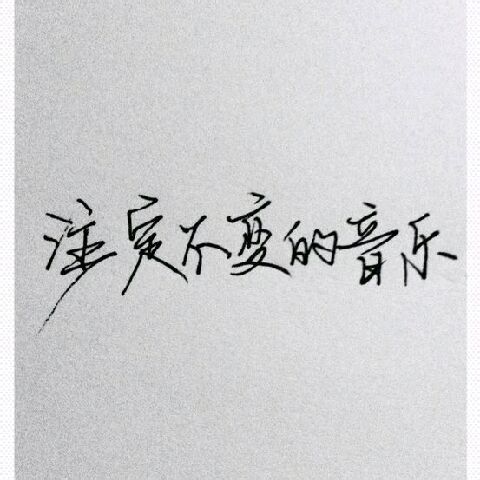 注定不变的音乐